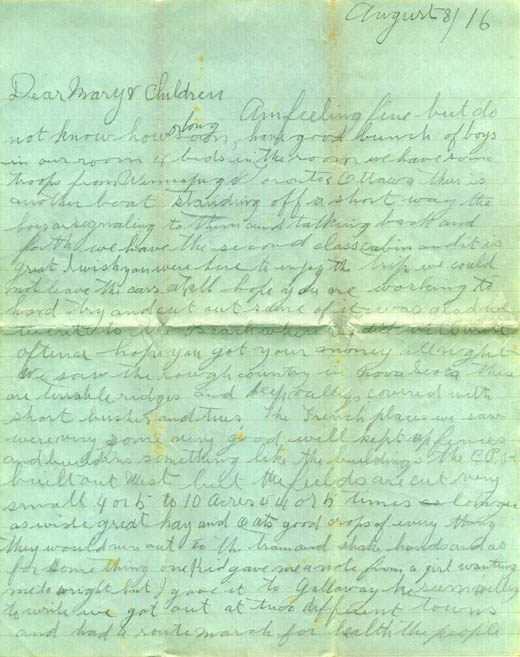 August 8/16
Dear Mary & Children
Am feeling fine but do
not know how soon or long, have good bunch of boys
in our room 4 beds in the room we have some
troops from Winnipeg & Toronto & Ottawa there is
another boat standing off a short way the
boys are signaling to them and talking back and
forth we have the second class cabin and it is
great I wish you were here to enjoy the trip we could
not leave the cars at all hope you are working to
hard try and cut out some of it was glad we
went to Beach when we did will write
often I hope you got your money allright
We saw the rough country in Nova Scotia there
are terrible ridges and deep valleys covered with
short bushes and trees The French places we saw
were very some very good well kept up fences
and builders something like the buildings the C.P.R
built out West but the fields are cut very
small 4 or 5 to 10 Acres 4 or 5 times as longer
as wide great hay and Oats good crops of every thing
they would run out to the train and shake hands and ask
for something one Kid gave me a note from a girl wanting
me to wright but I gave it to Gallaway he seem willing
to write we got out at two different towns
and had a route march for health the people